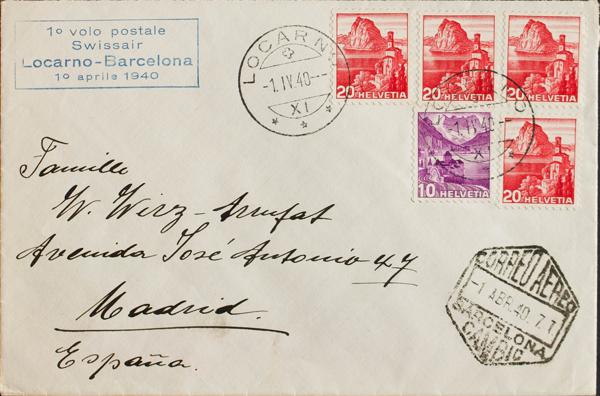 1º volo postale
Swissair
Locarno-Barcelona
1º aprile 1940
LOCARNO
-1.IV.40--
XI
20 HELVETIA
20 HELVETIA
20 HELVETIA
10 HELVETIA
20 HELVETIA
LOCARNO
-1.IV.40-
XI
Famille
W. Wirz-Arnfat
Avenida José Antonio 47
Madrid.
España.
CORREO AEREO
-1 ABR.40. 7.T
BARCELONA
CAMBIO